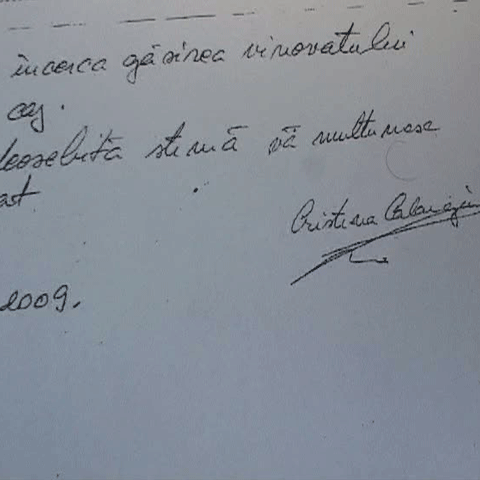 încerca găsirea vinovatului
caz.
deosebită stimă vă mulțumesc
Cristina
2009.